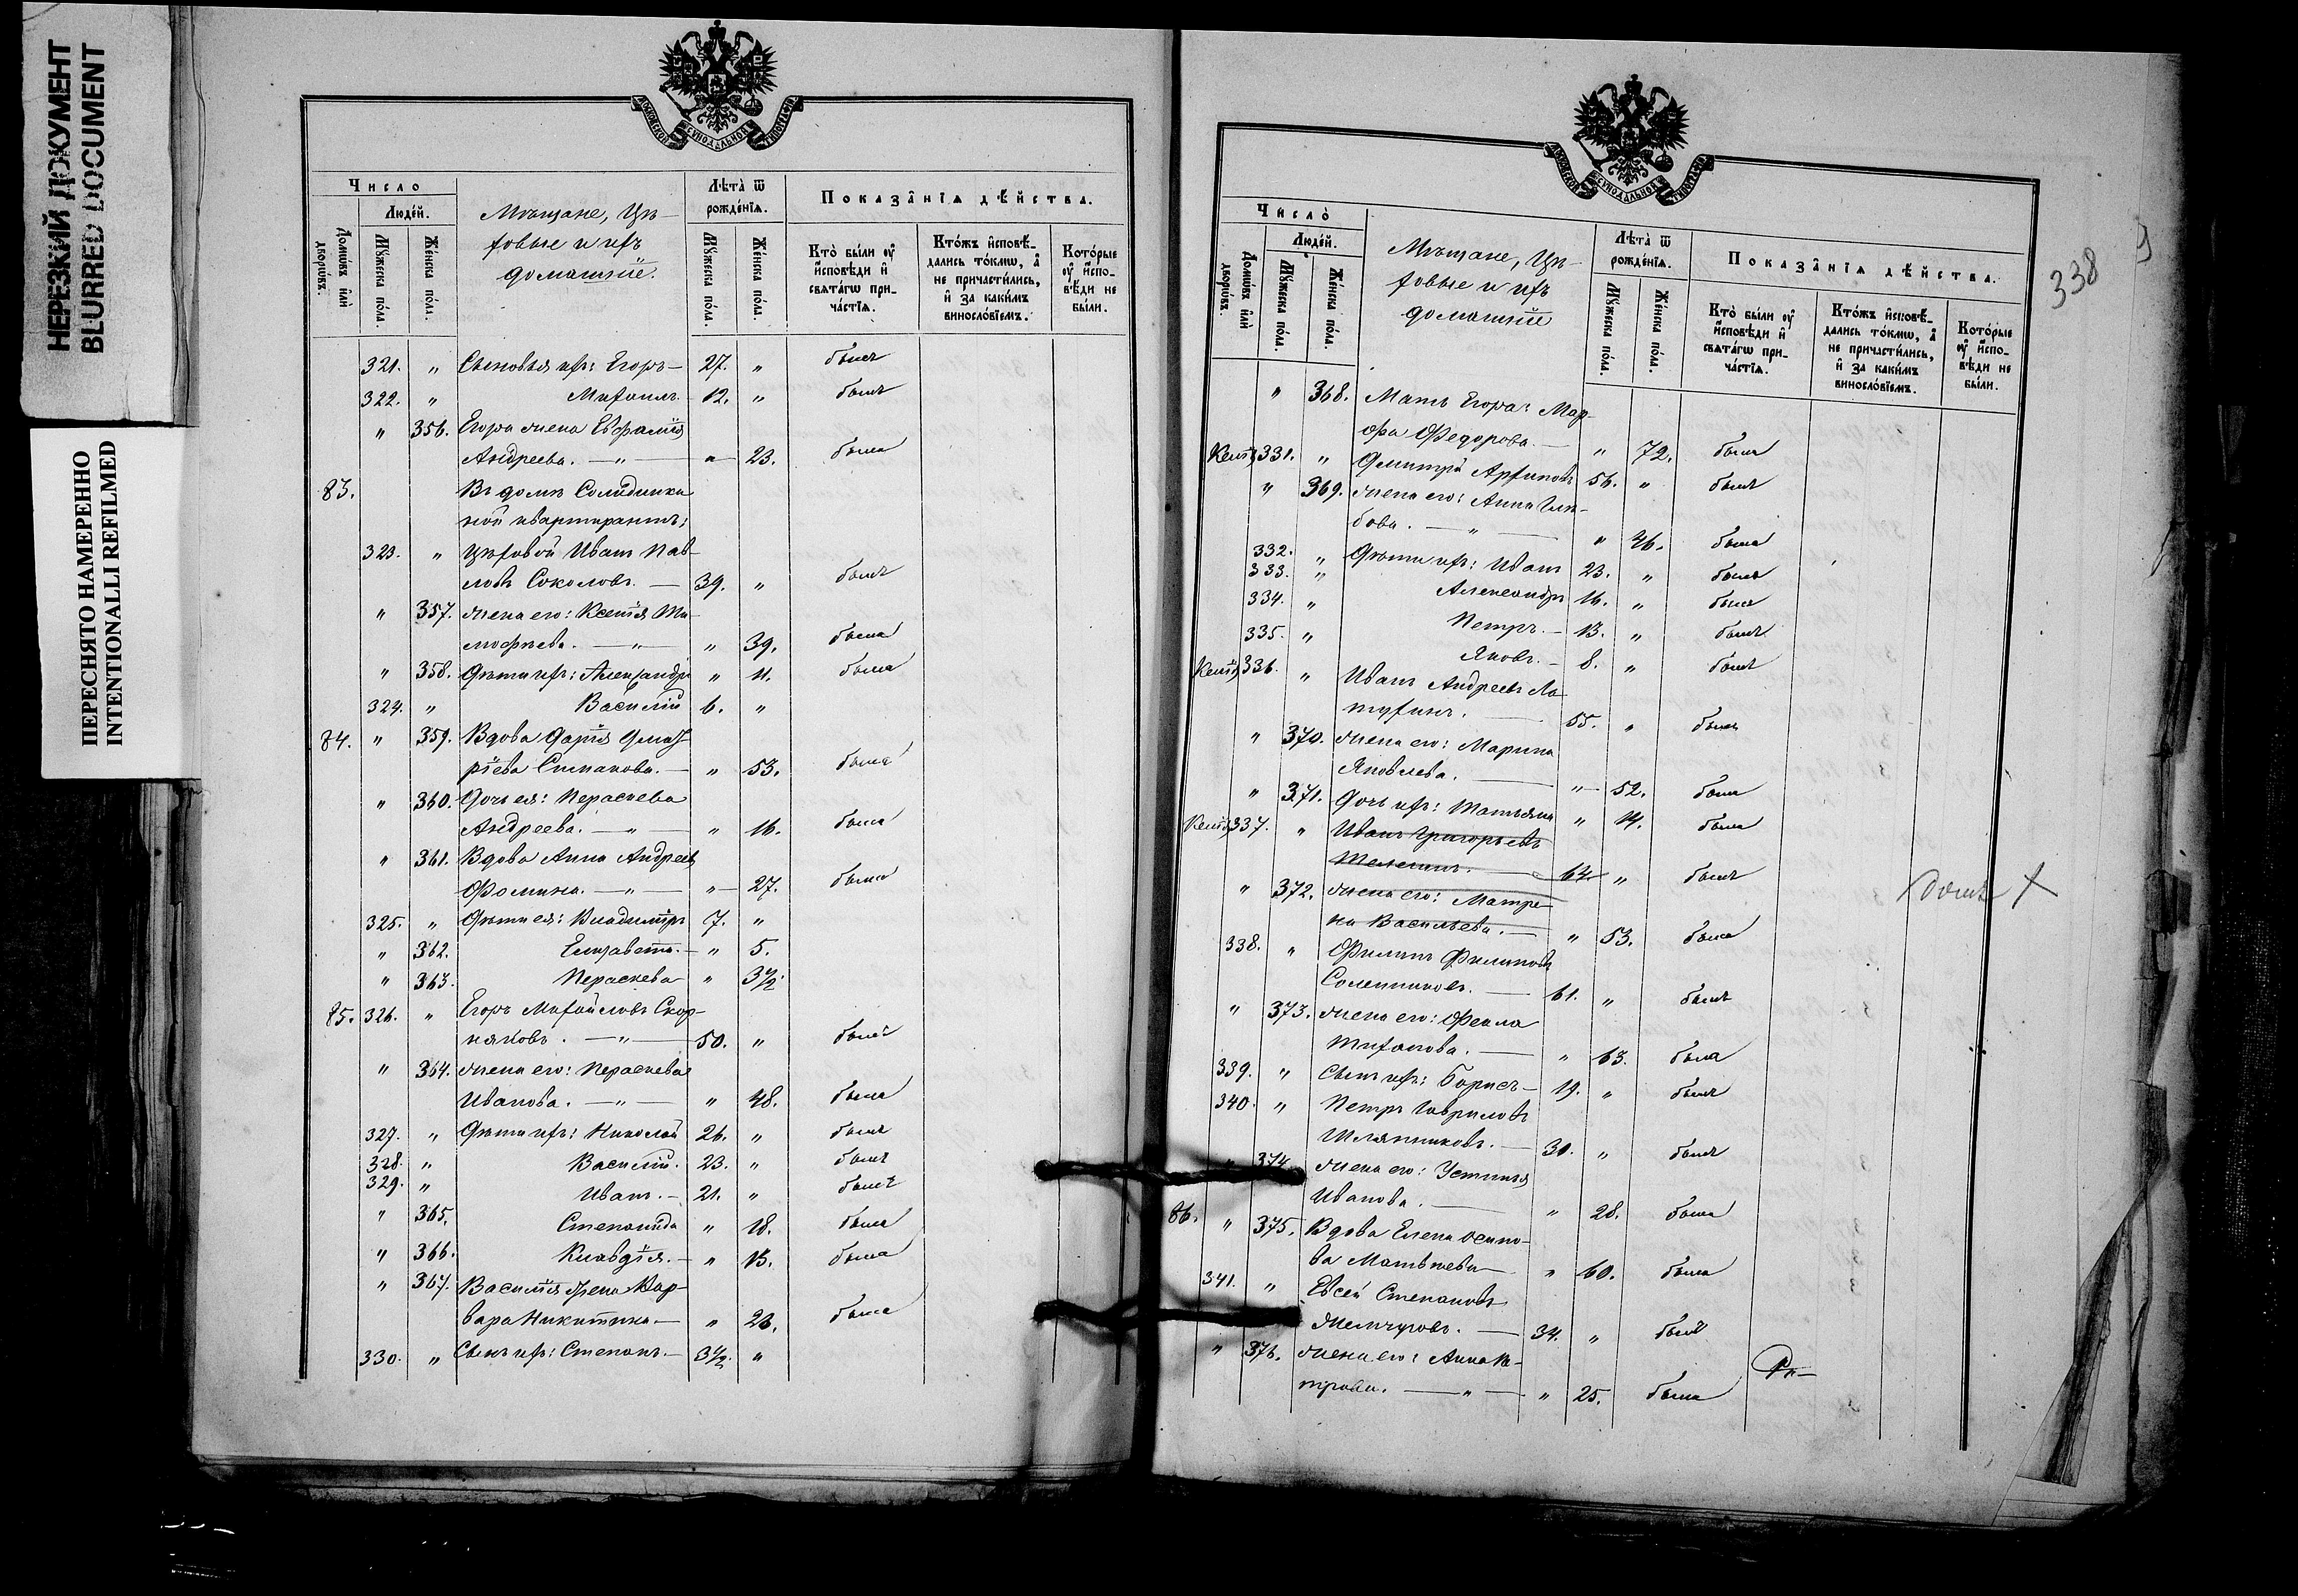 НЕРЕЗКИЙ ДОКУМЕНТ
BLURRED DOCUMENT
ПЕРЕСНЯТО НАМЕРЕННО
INTENTIONALLI REFILMED
МОСКОВСКОЙ СѴНОДАЛЬНОЙ ТИПОГРАФІИ
Число
Людей.
Домѡвъ или дворѡвъ.
Мꙋжеска пола.
Женска пола.
Мѣщане, Цѣ-
ховые и ихъ
домашніе.
Лѣта ѿ рожденїѧ.
Мꙋжеска пола.
Женска пола.
Показанїѧ дѣйства.
Кто были оу исповѣди и свѧтагѡ причастїѧ.
Ктожъ исповѣдались токмѡ, а не причастились, и за какимъ винословїемъ.
Которые оу исповѣди не были.
321. „ Сыновья ихъ: Егоръ — 27. „ былъ
322. „ Михаилъ — 12. „ былъ
„ 356. Егора жена Евфимія
Андреева. — „ — „ 23. была
83. Въ домѣ Солидники
ной квартирантъ:
323. „ Цѣховой Иванъ Пав-
ловъ Соколовъ. — 39. „ былъ
„ 357. жена его: Ксенія Ти-
мофѣева. — „ — „ 39. была
„ 358. Дѣти ихъ: Александра „ 11. была
324. „ Василій 6. „
84. „ 359. Вдова Дарія Дмит-
ріева Степанова. — „ 53. была
„ 360. Дочь ея: Параскева
Андреева. — „ — „ 16. была
„ 361. Вдова Анна Андреев
Фомина. — „ — „ 27. была
325. „ Дѣти ея: Владиміръ 7. „
„ 362. Елизавета. — „ 5.
„ 363. Параскева „ 3½.
85. 326. „ Егоръ Михайловъ Скор-
няковъ. — „ — 50. „ былъ
„ 364. жена его: Параскева
Иванова. — „ — „ 48. была
327. „ Дѣти ихъ: Николай 26. „ былъ
328. „ Василій. 23. „ былъ
329. „ Иванъ. — 21. „ былъ
„ 365. Степанида „ 18. была
„ 366. Клавдія. — „ 13. была
„ 367. Василія жена Вар-
вара Никитина — „ 23. была
330. „ Сынъ ихъ: Степанъ. — 3½. „
338
МОСКОВСКОЙ СѴНОДАЛЬНОЙ ТИПОГРАФІИ
Число
Людей.
Домѡвъ или дворѡвъ.
Мꙋжеска пола.
Женска пола.
Мѣщане, Цѣ-
ховые и ихъ
домашніе
Лѣта ѿ рожденїѧ.
Мꙋжеска пола.
Женска пола.
Показанїѧ дѣйства.
Кто были оу исповѣди и свѧтагѡ причастїѧ.
Ктожъ исповѣдались токмѡ, а не причастились, и за какимъ винословїемъ.
Которые оу исповѣди не были.
„ 368. Мать Егора: Мар-
фа Федорова. — „ 72. была
331. „ Дмитрій Архиповъ 56. „ былъ
„ 369. жена его: Анна Глѣ-
бова. — „ — „ 46. была
332. „ Дѣти ихъ: Иванъ 23. „ былъ
333. „ Александръ 16. „ былъ
334. „ Петръ. — 13. „ былъ
335. „ Яковъ. — 8. „ былъ
336. „ Иванъ Андреевъ Ла-
тухинъ. — 55. „ былъ
„ 370. жена его: Марина
Яковлева. — „ 52. была
„ 371. Дочь ихъ: Татьяна „ 14. была
337. „ Иванъ Григорьевъ
64. „ былъ
„ 372. жена его: Матре-
на Васильева. — „ 53. была
338. „ Филипъ Филиповъ
Солениковъ. — 61. „ былъ
„ 373. жена его: Фекла
Тиханова. — „ 63. была
339. „ Сынъ ихъ: Борисъ — 19. „ былъ
340. „ Петръ Гавриловъ
Шляпниковъ. — 30. „ былъ
„ 374. жена его: Устинья
Иванова. — „ 28. была
86. „ 375. Вдова Елена Осипо-
ва Матвѣева — „ 60. была
341. „ Евсей Степановъ
Жемчуговъ. — 34. „ былъ
„ 376. жена его: Анна Пе-
трова. — „ — „ 25. была